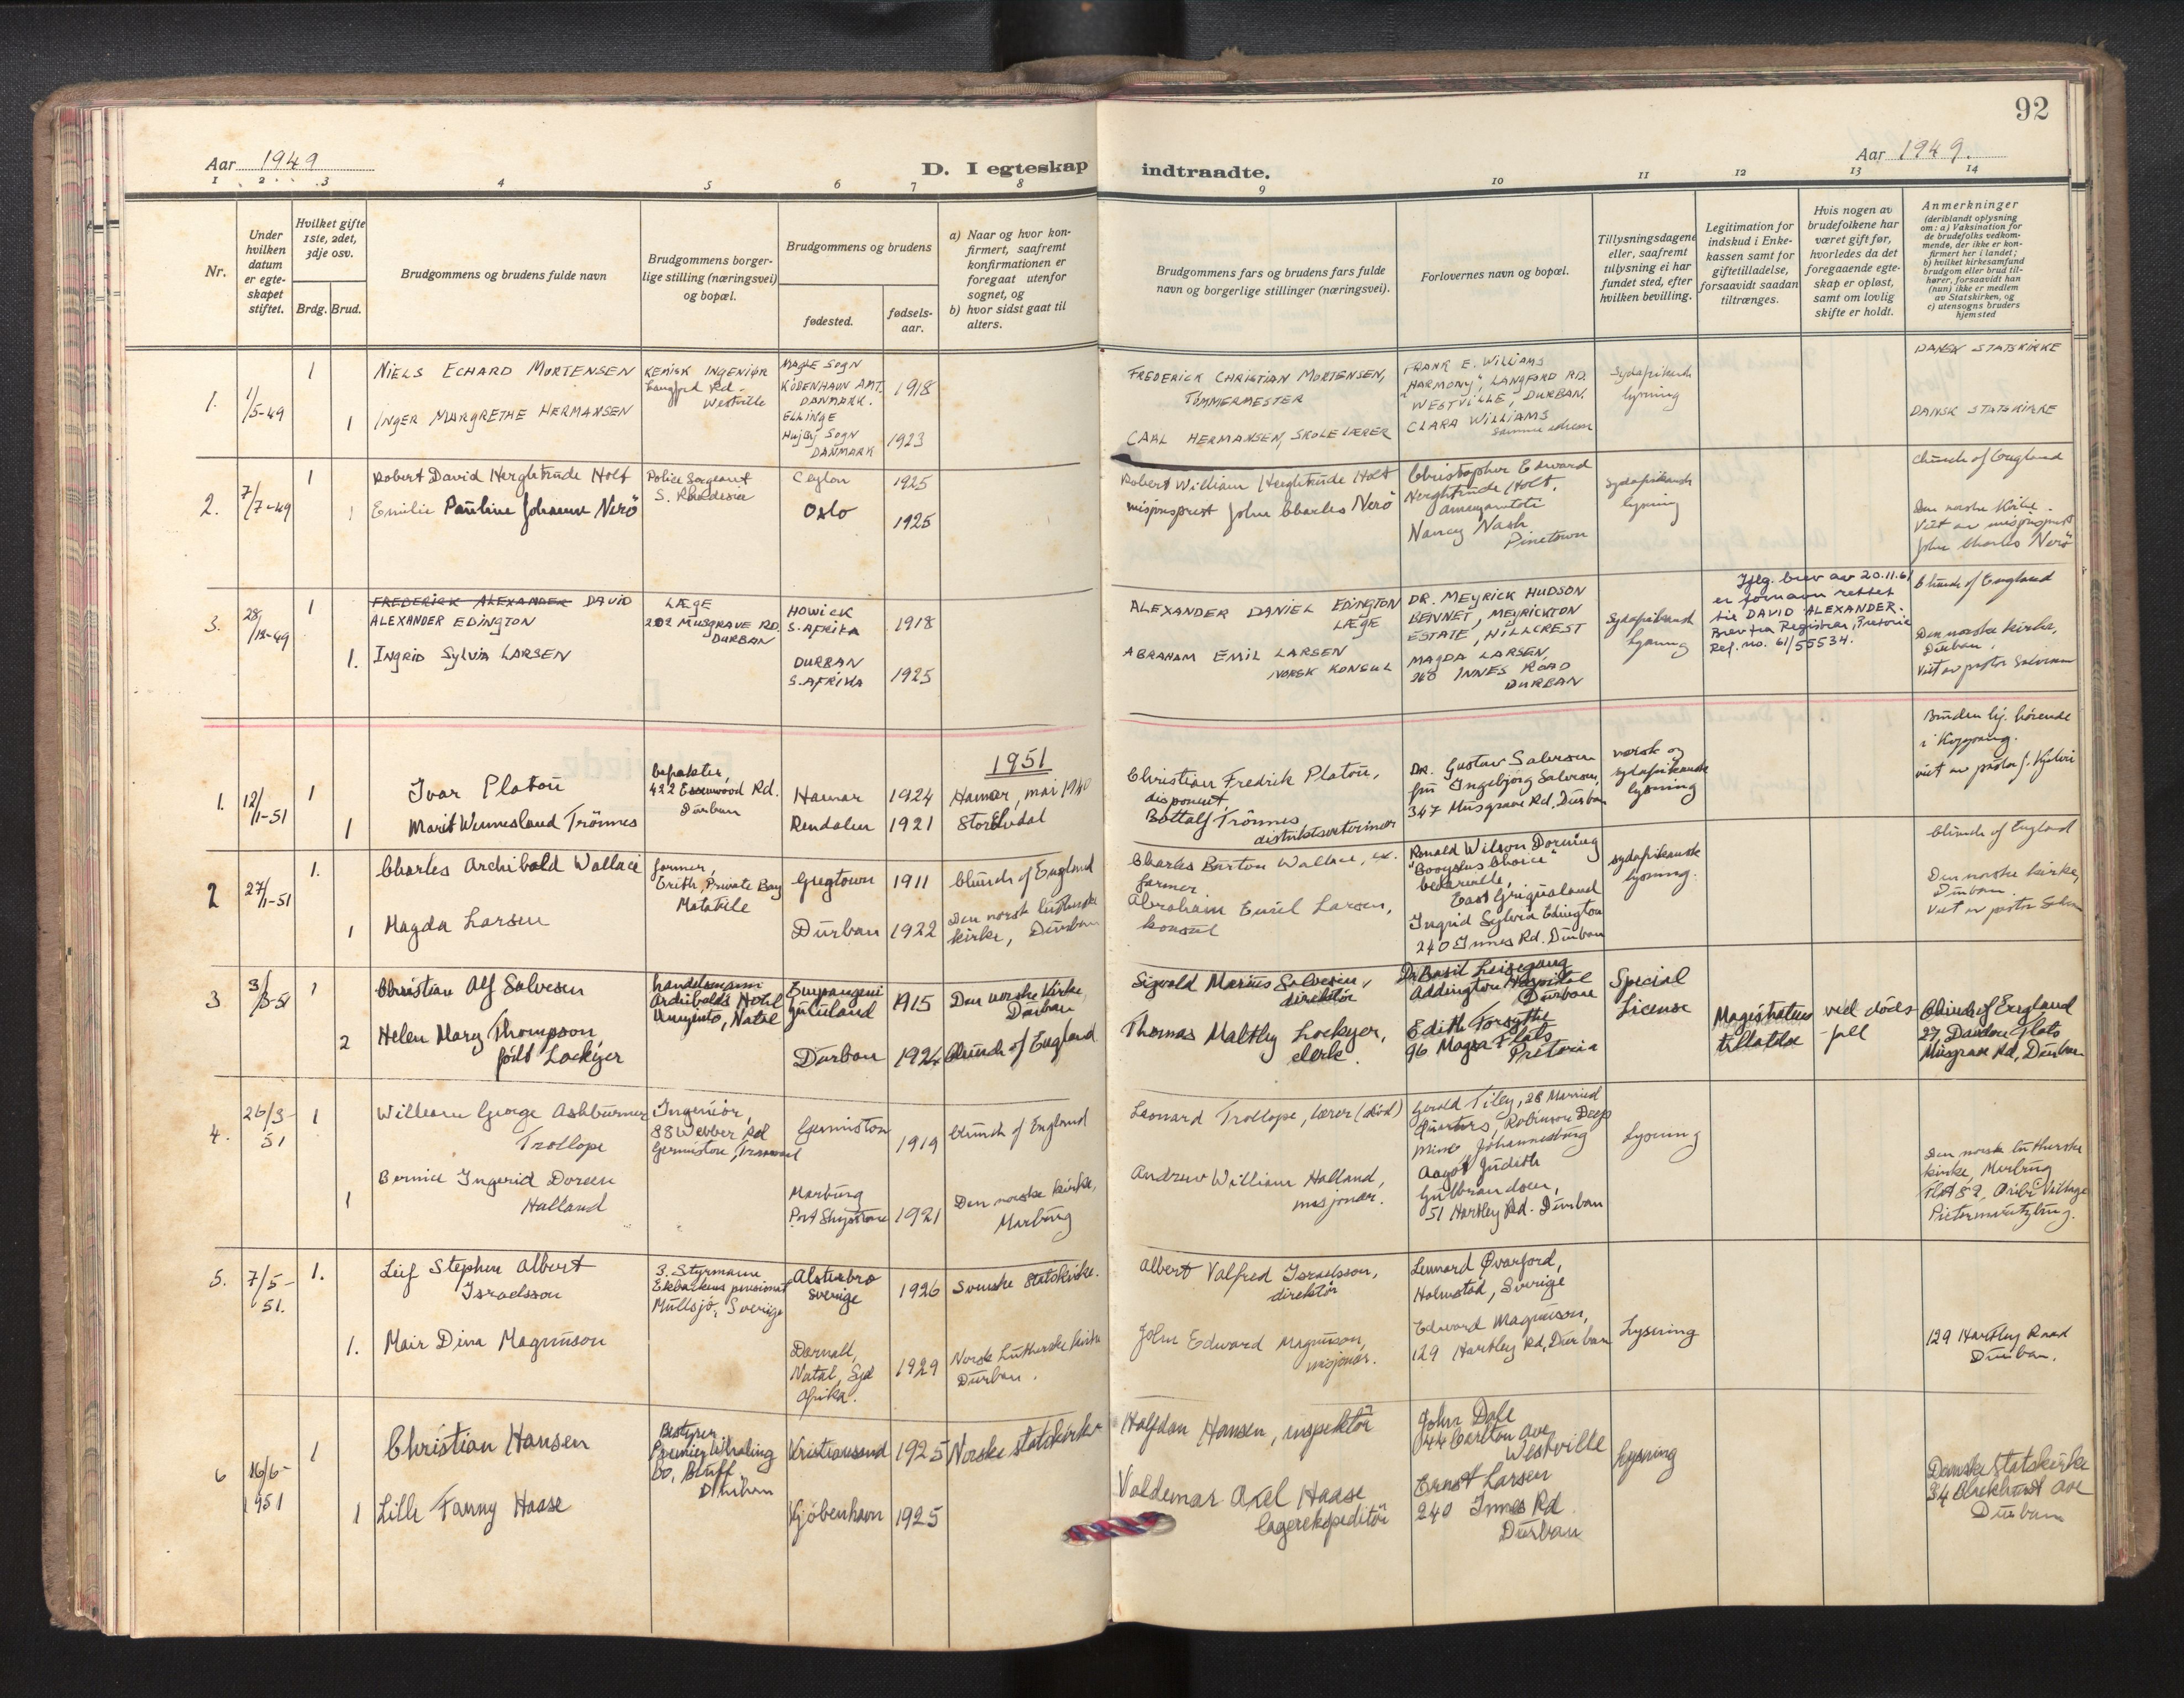 92
Aar 1949
D. I egteskap indtraadte.
Aar 1949.
1 2 3 4 5 6 7 8 9 10 11 12 13 14
Nr.
Under hvilken datum er egteskapet stiftet.
Hvilket gifte 1ste, 2det, 3dje osv.
Brdg. Brud.
Brudgommens og brudens fulde navn
Brudgommens borgerlige stilling (næringsvei) og bopæl.
Brudgommens og brudens
fødested.
fødselsaar.
a) Naar og hvor konfirmert, saafremt konfirmationen er foregaat utenfor sognet, og
b) hvor sidst gaat til alters.
Brudgommens fars og brudens fars fulde navn og borgerlige stillinger (næringsvei).
Forlovernes navn og bopæl.
Tillysningsdagene eller, saafremt tillysning ei har fundet sted, efter hvilken bevilling.
Legitimation for indskud i Enkekassen samt for giftetilladelse, forsaavidt saadan tiltrænges.
Hvis nogen av brudefolkene har været gift før, hvorledes da det foregaaende egteskap er opløst, samt om lovlig skifte er holdt.
Anmerkninger
(deriblandt oplysning om: a) Vaksination for de brudefolks vedkommende, der ikke er konfirmert her i landet; b) hvilket kirkesamfund brudgom eller brud tilhører, forsaavidt han (hun) ikke er medlem av Statskirken, og c) utensogns bruders hjemsted
1. 1/5-49
1
NIELS ECHARD MORTENSEN
KEMISK INGENIØR
Langford Rd.
Westville
MAGLE SOGN
KØBENHAVN AMT.
DANMARK.
1918
FREDERICK CHRISTIAN MORTENSEN,
TØMMERMESTER
FRANK E. WILLIAMS
"HARMONY", LANGFORD RD.
WESTVILLE, DURBAN.
Sydafrikansk
lysning
DANSK STATSKIRKE
1
INGER MARGRETHE HERMANSEN
ELLINGE
Højby SOGN
DANMARK
1923
CARL HERMANSEN, SKOLELÆRER
CLARA WILLIAMS
samme adresse
DANSK STATSKIRKE
2. 7/7-49
1
Robert David Herghtrude Holt
Police Sergeant
S. Rhodesia
Ceylon
1925
Robert William Herghtrude Holt
Christopher Edward
Herghtrude Holt,
Sydafrikansk
lysning
Church of England
1
Emilie Pauline Johanne Nerö
Oslo
1925
misjonsprest John Charles Nerö
Nancy Nash
Pinetown
Den norske Kirke.
Viet av misjonsprest
John Charles Nerö
3. 28/12-49
1
FREDERICK ALEXANDER DAVID
ALEXANDER EDINGTON
LÆGE
202 MUSGRAVE RD.
DURBAN
HOWICK
S. AFRIKA
1918
ALEXANDER DANIEL EDINGTON
LÆGE
DR. MEYRICK HUDSON
BENNET, MEYRICKTON
ESTATE, HILLCREST
Sydafrikansk
lysning
Iflg. brev av 20.11.61
er fornavn rettet
til DAVID ALEXANDER.
Brev fra Registrar, Pretoria
Ref. no. 61/55534.
Church of England
1.
INGRID SYLVIA LARSEN
DURBAN
S. AFRIKA
1925
ABRAHAM EMIL LARSEN
NORSK KONSUL
MAGDA LARSEN,
240 INNES ROAD
DURBAN
Den norske kirke,
Durban.
Viet av pastor Salvesen
1951
1. 12/1-51
1
Ivar Platou
422 Essenwood Rd.
Durban
Hamar
1924
Hamar, mai 1940
Christian Fredrik Platou,
disponent,
Dr. Gustav Salvesen
fru Ingebjørg Salvesen,
347 Musgrave Rd, Durban
norsk og
sydafrikanske
lysning
Bruden
viet av pastor
1
Marit Wennesland Trönnes
Rendalen
1921
Storelvdal
Bottolf Trönnes,
distriktsveterinær
2 27/1-51
1.
Charles Archibald Wallace
farmer,
Erith, Private Bag
Matatiele
Greytown
1911
Church of England
Charles Burton Wallace, ex.
farmer.
Ronald Wilson Dorning
Choice"
East Griqualand
sydafrikanske
lysning.
Church of England
1
Magda Larsen
Durban
1922
Den norsk lutherske
kirke, Durban
Abraham Emil Larsen,
konsul
Ingrid Sylvia Edington
240 Innes Rd. Durban
Den norske kirke,
Durban.
Viet av pastor Salvesen
3 3/3-51
1
Christian Alf Salvesen
handelsmann
Archibalds Hotel
Umzinto, Natal
Empangeni
Zululand
1915
Den norske Kirke,
Durban
Sigvald Marius Salvesen,
direktør
Dr Basil Leisegang
Addington Hospital
Durban
Special
License
Magistratens
tillatelse
ved döds-
fall
Church of England
27 Flats
Musgrave Rd, Durban
2
Helen Mary Thompson
født Lockyer
Durban
1924
Church of England
Thomas Maltby Lockyer,
clerk.
Edith Forsythe
96 Magsa Flats
Pretoria
4. 26/3-51
1
William George Ashburner
Trollope
Ingeniør,
88 Webber Rd
Germiston, Transvaal
Germiston
1919
Church of England
Leonard Trollope, lærer (död)
Gerald Tiley, 28 Married
Quarters, Robinson Deep
Mine, Johannesburg
Lysning
1
Bernice Ingerid Doreen
Halland
Marburg
Port Shepstone
1921
Den norske kirke,
Marburg
Andrew William Halland,
misjonær.
Aagot Judith
Gulbrandsen,
51 Hartley Rd. Durban
Den norske lutherske
kirke, Marburg
Flat 52, Oribi Village
Pietermaritzburg.
5. 7/5-51.
1.
Leif Stephen Albert
Israelsson
3. Styrmann
Ekbackens pensionat
Mullsjö, Sverige
Alsterbro
Sverige
1926
Svenske Statskirke.
Albert Valfred Israelsson,
direktör
Lennard Qvarford,
Halmstad, Sverige
1.
Mair Dina Magnuson
Darnall,
Natal, Syd
Afrika.
1929
Norsk Lutherske kirke
Durban.
John Edward Magnuson,
misjonær.
Edward Magnuson,
129 Hartley Rd, Durban
Lysning
129 Hartley Road
Durban.
6 16/6-1951
1
Christian Hansen
Bestyrer
Premier Whaling
Co, Bluff.
Durban
Kristiansand
1925
Norske statskirke
Halfdan Hansen, inspektör
John Dale
44 Carlton Ave
Westville
Lysning
1
Lilli Fanny Haase
Kjöbenhavn
1925
Valdemar Axel Haase
lagerekspeditör
Ernst Larsen
240 Innes Rd.
Durban
Danske Statskirke
34 Ave
Durban